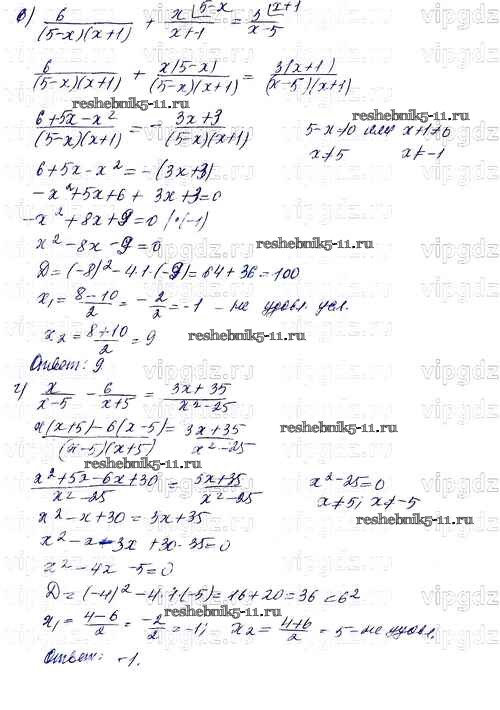 в) 6/((5-x)(x+1)) + x⌊5-x/(x+1) = 3⌊x+1/(x-5)
6/((5-x)(x+1)) + x(5-x)/((5-x)(x+1)) = 3(x+1)/((x-5)(x+1))
reshebnik5-11.ru
reshebnik5-11.ru
(6+5x-x²)/((5-x)(x+1)) = - (3x+3)/((5-x)(x+1)) 5-x≠0 или x+1≠0
x≠5 x≠-1
6+5x-x² = -(3x+3)
-x²+5x+6+3x+3=0
-x²+8x+9=0 |·(-1)
x²-8x-9=0 reshebnik5-11.ru
D=(-8)²-4·1·(-9)=64+36=100
x₁=(8-10)/2 = -2/2 = -1 - не удовл. усл.
x₂=(8+10)/2 = 9 reshebnik5-11.ru
Ответ: 9
г) x/(x-5) - 6/(x+5) = (3x+35)/(x²-25)
(x(x+5)-6(x-5))/((x-5)(x+5)) = (3x+35)/(x²-25) reshebnik5-11.ru
reshebnik5-11.ru
(x²+5x-6x+30)/(x²-25) = (3x+35)/(x²-25) x²-25=0
x≠5; x≠-5
x²-x+30=3x+35
x²-x-3x+30-35=0
x²-4x-5=0
D=(-4)²-4·1·(-5)=16+20=36=6²
reshebnik5-11.ru
x₁=(4-6)/2 = -2/2 = -1; x₂=(4+6)/2 = 5-не удовл.
Ответ: -1.